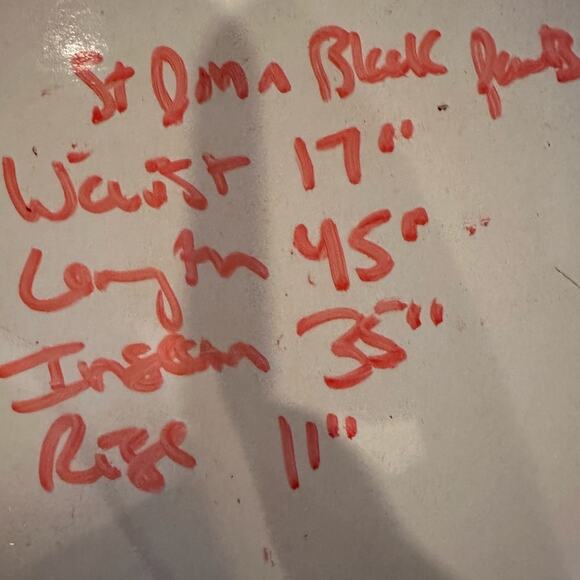 Black Pants
Waist 17"
Length 45"
Inseam 35"
Rise 11"